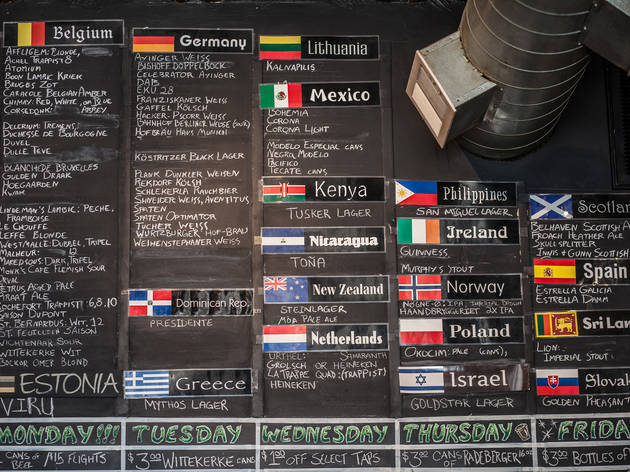 Belgium
AFFLIGEM: BLONDE,
ACHEL TRAPPIST 8
ATOMIUM
BOON LAMBIC KRIEK
BRUGES ZOT
CARACOLE BELGIAN AMBER
CHIMAY: RED, WHITE, OR BLUE
CORSEDONK: ABBEY
DELERIUM TREMENS:
DUCHESSE DE BOURGOGNE
DUVEL
DULLE TEVE
BLANCHEDE BRUXELLES
GULDEN DRAAK
HOEGAARDEN
KWAK
LINDEMAN'S LAMBIC: PECHE,
FRAMBOISE
LE CHOUFFE
LEFFE BLONDE
WESTMALLE: DUBBEL, TRIPEL
MALHEUR: 12
MAREDSOUS: DARK, TRIPEL
MONK'S CAFE FLEMISH SOUR
ORVAL
PETRUS AGED PALE
PIRAAT ALE
ROCHEFORT TRAPPIST: 6,8,10
SAISON DUPONT
ST. BERNARDUS: WIT, 12
ST. FEUILLIEN SAISON
VICHTENAAR SOUR
WITTEKERKE WIT
BOCKOR OMER BLOND
ESTONIA
VIRU
Germany
AYINGER WEISS
BISHOFF DOPPELBOCK
CELEBRATOR AYINGER
DAB
EKU 28
FRANZISKANER WEISS
GAFFEL KÖLSCH
HACKER-PSCORR WEISS
BAHNHOF BERLINER WEISSE (SOUR)
HOFBRÄU HAUS MUNICH
KÖSTRITZER BLACK LAGER
PLANK DUNKLER WEISEN
REISDORF KÖLSH
SCHLEKERLA RAUCHBIER
SCHNEIDER WEISS, AVENTITUS
SPATEN
SPATEN OPTIMATOR
TUCHER WEISS
WURTZBURGER HOF-BRAU
WEIHENSTEPHANER WEISS
Dominican Rep.
PRESIDENTE
Greece
MYTHOS LAGER
Lithuania
KALNAPILIS
Mexico
BOHEMIA
CORONA
CORONA LIGHT
MODELO ESPECIAL CANS
NEGRO MODELO
PACIFICO
TECATE CANS
Kenya
TUSKER LAGER
Nicaragua
TOÑA
New Zealand
STEINLAGER
MOA PALE ALE
Netherlands
URTHEL: SAMARANTH
GROLSCH OR HEINEKEN
LA TRAPPE QUAD: (TRAPPIST)
HEINEKEN
Philippines
SAN MIGUEL LAGER
Ireland
GUINNESS
MURPHY'S STOUT
Norway
NØGNE-Ø: IPA
HANDBRYGGERIET 2X IPA
Poland
OKOCIM: PALE (CANS),
Israel
GOLDSTAR LAGER
Scotl
BELHAVEN SCOTTISH A
FRAOCH HEATHER ALE
SKULLSPLITTER
INNIS & GUNN SCOTTISH
Spain
ESTRELLA GALICIA
ESTRELLA DAMM
Sri Lan
LION:
IMPERIAL STOUT
Slovak
GOLDEN PHEASANT
MONDAY!!!
CANS OF BEER / $15 FLIGHTS
TUESDAY
$3.00 WITTEKERKE CANS
WEDNESDAY
$1.00 OFF SELECT TAPS
THURSDAY
$3.00 CANS OF RADEBERGER 16oz CANS
FRIDA
$3.00 BOTTLES OF